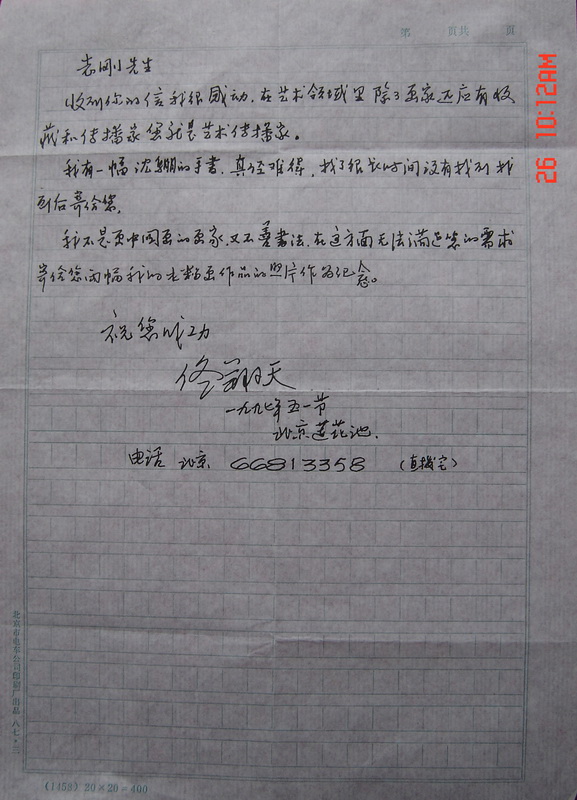 第　　页共　　页
袁刚先生
收到你的信我很感动，在艺术领域里除了画家还应有收
藏和传播家您就是艺术传播家。
我有一幅沈鹏的手书，真迹难得，找了很长时间没有找到找
到后寄给您。
我不是中国画的画家，又不善书法，在这方面无法满足您的需求
寄给您两幅我的作品的照片作为纪念。
祝您成功
佟翔天
一九九七年五一节
北京莲花池.
电话 北京 66813358 （直拨宅）
26 10:12AM
北京市电车公司印刷厂出品 八七·
(1458) 20×20=400